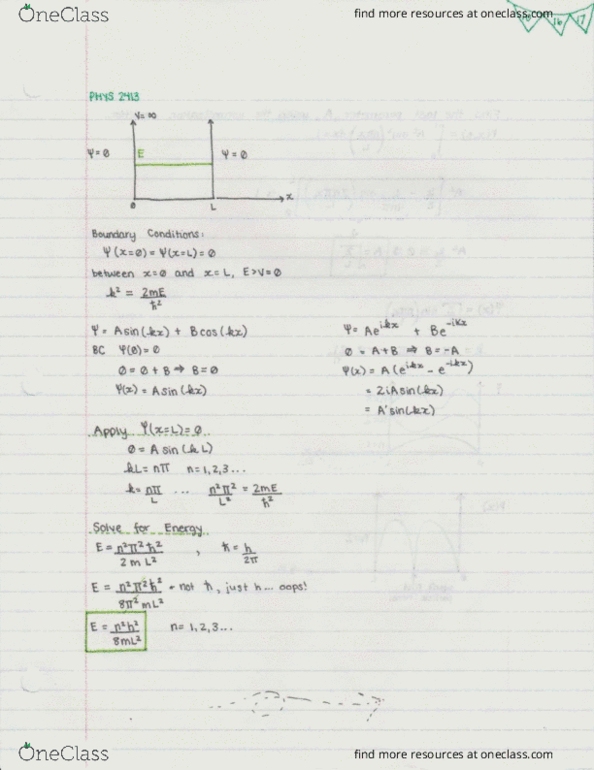 OneClass
find more resources at oneclass.com
16 17
PHYS 2413
V=∞
Ψ=0 E Ψ=0
0 L x
Boundary Conditions:
Ψ(x=0)=Ψ(x=L)=0
between x=0 and x=L, E>V=0
k² = 2mE/ħ²
Ψ= Asin(kx) + Bcos(kx)
BC Ψ(0)=0
0=0+B ⇒ B=0
Ψ(x)= Asin(kx)
Ψ= Ae^ikx + Be^-ikx
0=A+B ⇒ B=-A
Ψ(x)= A(e^ikx - e^-ikx)
= 2iAsin(kx)
= A'sin(kx)
Apply Ψ(x=L)=0
0=A sin(kL)
kL=nπ n=1,2,3...
k=nπ/L ... n²π²/L² = 2mE/ħ²
Solve for Energy
E=n²π²ħ²/2mL² , ħ=h/2π
E= n²π²ħ²/8π²mL² ← not ħ, just h... oops!
E=n²h²/8mL² n=1,2,3...
OneClass
find more resources at oneclass.com